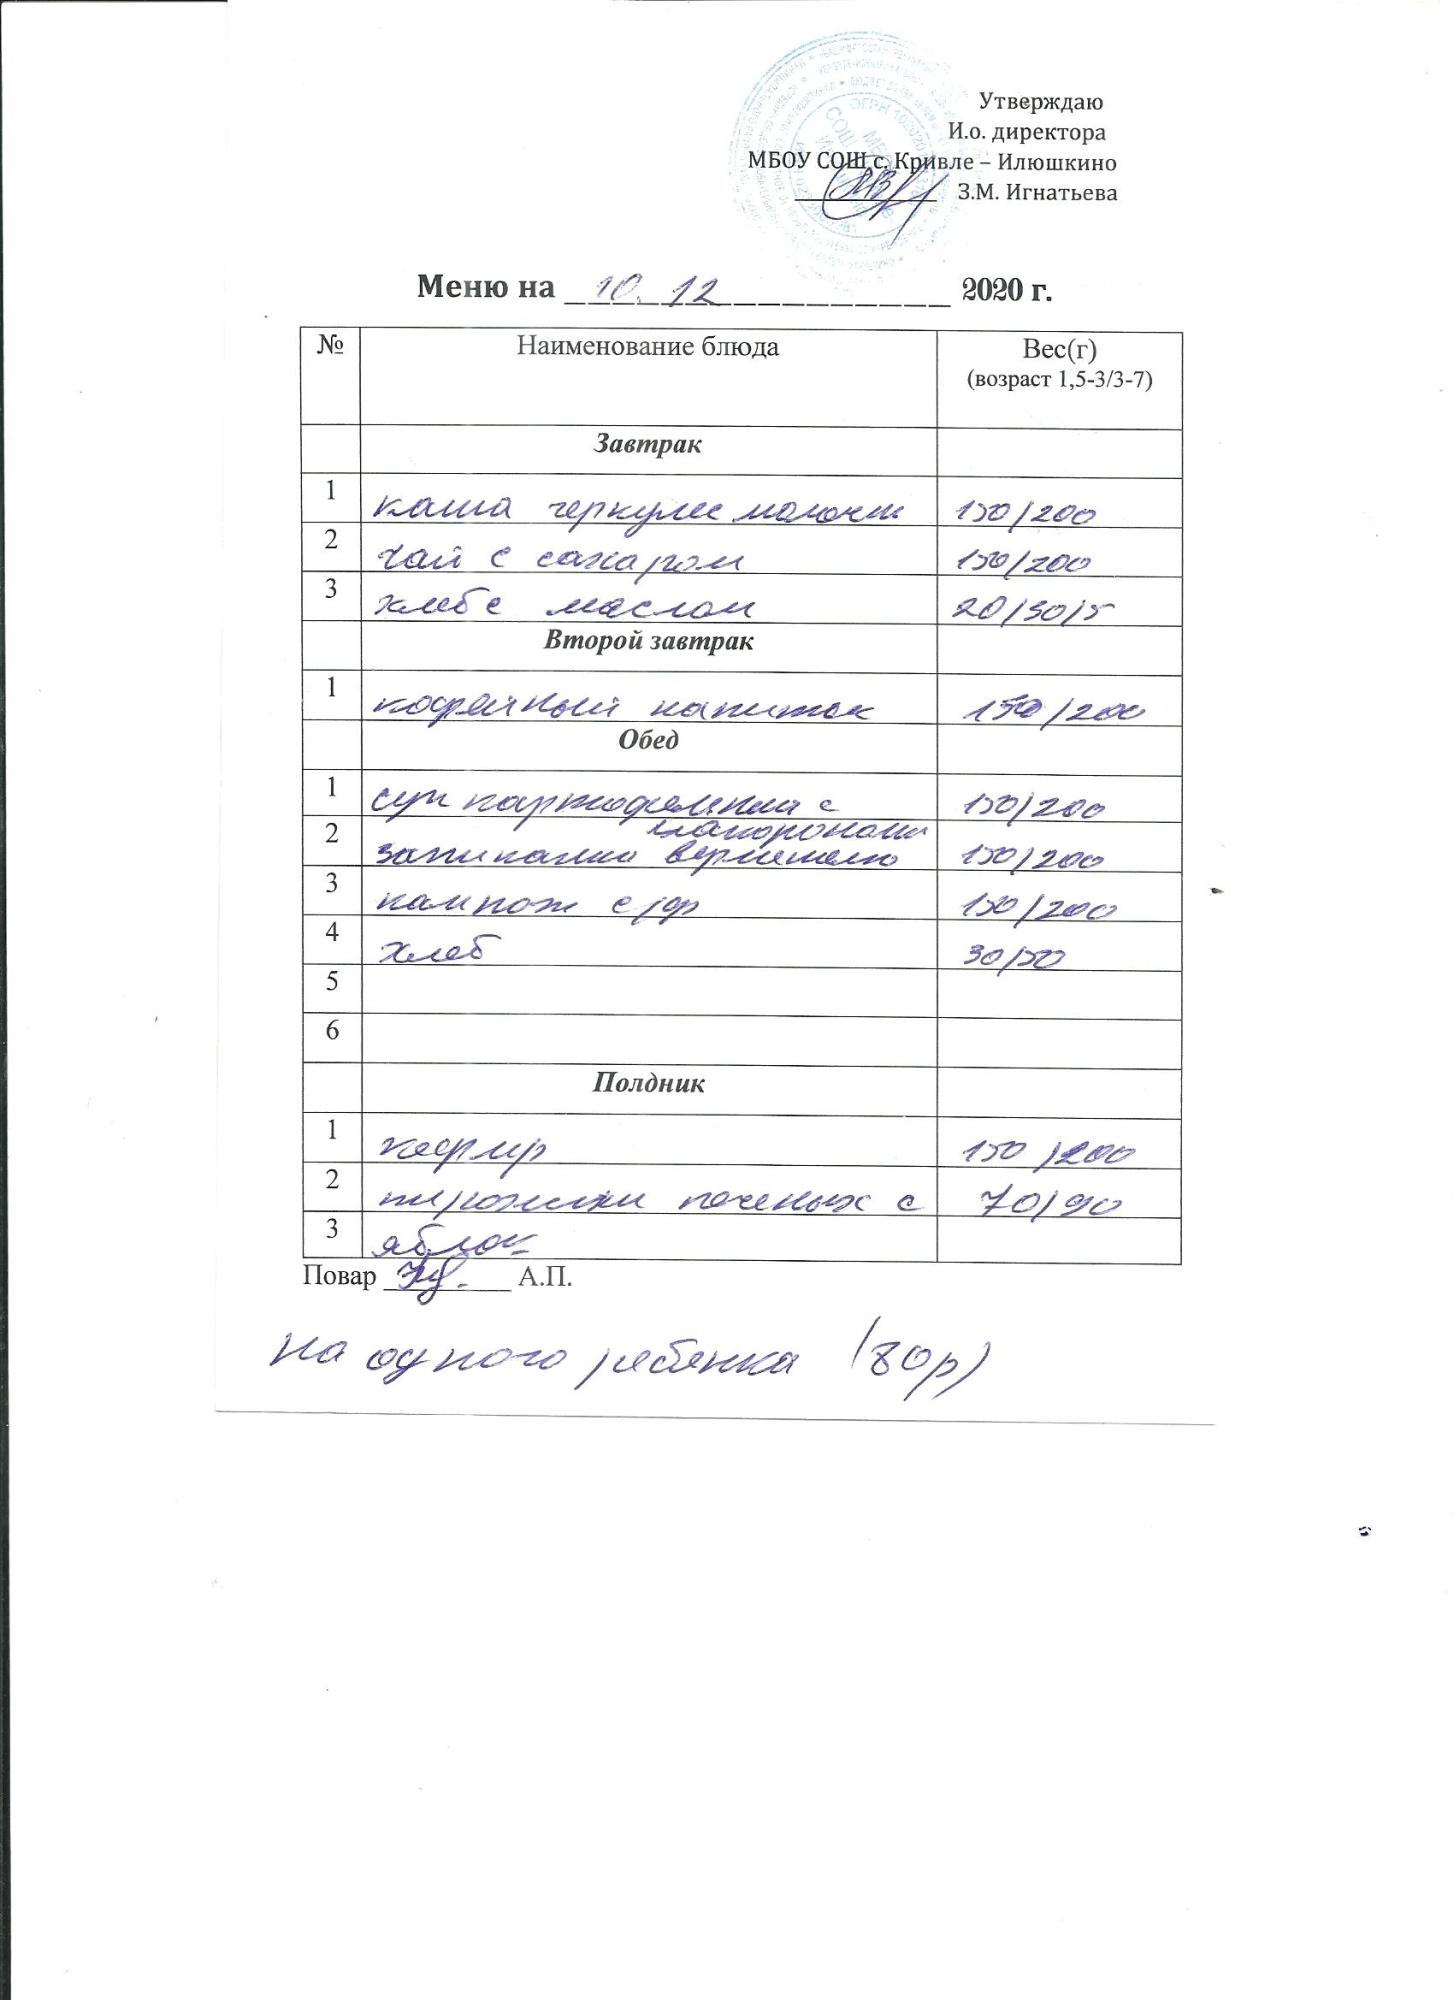 Утверждаю
И.о. директора
МБОУ СОШ с. Кривле – Илюшкино
З.М. Игнатьева
Меню на 10.12 2020 г.
№ Наименование блюда Вес(г)
(возраст 1,5-3/3-7)
Завтрак
1 каша геркулес молочн 150/200
2 чай с сахаром 150/200
3 хлеб с маслом 20/30/5
Второй завтрак
1 кофейный напиток 150/200
Обед
1 суп картофельный с 150/200
макаронами
2 запиканка вермишелью 150/200
3 компот с/ф 150/200
4 хлеб 30/50
5
6
Полдник
1 кефир 150/200
2 пирожки печеных с 70/90
3 яблок
Повар А.П.
на одного ребенка (80р)